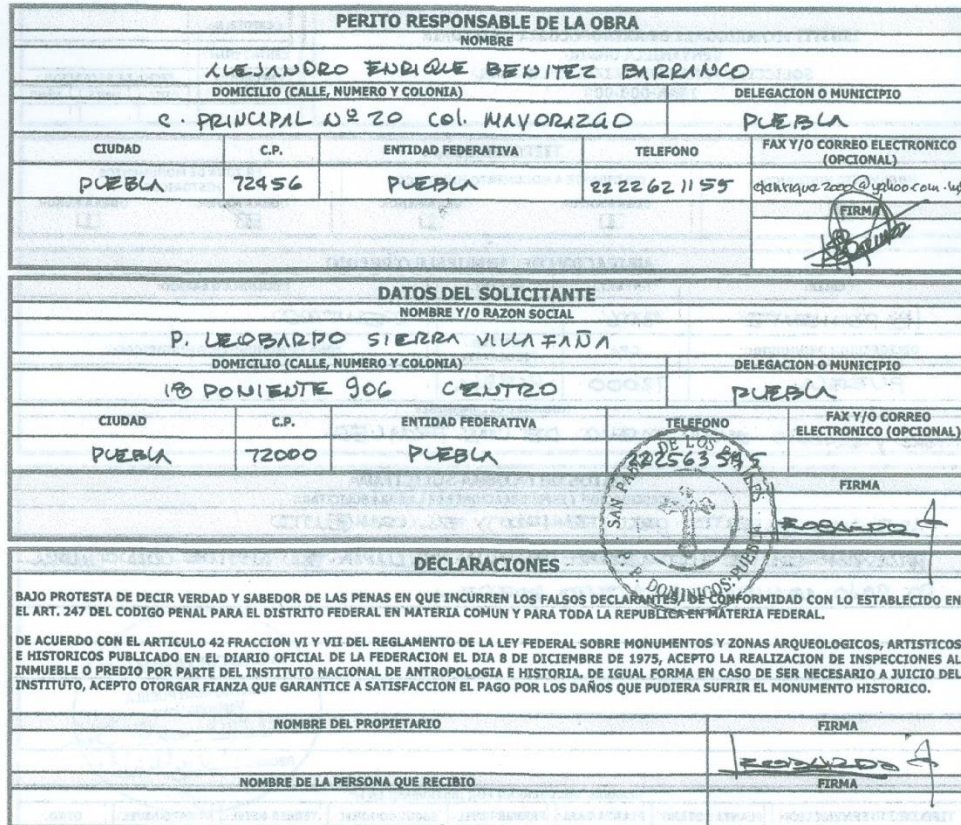 PERITO RESPONSABLE DE LA OBRA
NOMBRE
ALEJANDRO ENRIQUE BENITEZ BARRANCO
DOMICILIO (CALLE, NUMERO Y COLONIA) DELEGACION O MUNICIPIO
C. PRINCIPAL Nº 20 COL. MAYORAZGO PUEBLA
CIUDAD C.P. ENTIDAD FEDERATIVA TELEFONO FAX Y/O CORREO ELECTRONICO (OPCIONAL)
PUEBLA 72456 PUEBLA 2222621155
FIRMA
DATOS DEL SOLICITANTE
NOMBRE Y/O RAZON SOCIAL
P. LEOBARDO SIERRA VILLAFAÑA
DOMICILIO (CALLE, NUMERO Y COLONIA) DELEGACION O MUNICIPIO
18 PONIENTE 906 CENTRO PUEBLA
CIUDAD C.P. ENTIDAD FEDERATIVA TELEFONO FAX Y/O CORREO ELECTRONICO (OPCIONAL)
PUEBLA 72000 PUEBLA
SAN PABLO DE LOS
P. P. DOMINICOS. PUEBLA
FIRMA
DECLARACIONES
BAJO PROTESTA DE DECIR VERDAD Y SABEDOR DE LAS PENAS EN QUE INCURREN LOS FALSOS DECLARANTES, DE CONFORMIDAD CON LO ESTABLECIDO EN
EL ART. 247 DEL CODIGO PENAL PARA EL DISTRITO FEDERAL EN MATERIA COMUN Y PARA TODA LA REPUBLICA EN MATERIA FEDERAL.
DE ACUERDO CON EL ARTICULO 42 FRACCION VI Y VII DEL REGLAMENTO DE LA LEY FEDERAL SOBRE MONUMENTOS Y ZONAS ARQUEOLOGICOS, ARTISTICOS
E HISTORICOS PUBLICADO EN EL DIARIO OFICIAL DE LA FEDERACION EL DIA 8 DE DICIEMBRE DE 1975, ACEPTO LA REALIZACION DE INSPECCIONES AL
INMUEBLE O PREDIO POR PARTE DEL INSTITUTO NACIONAL DE ANTROPOLOGIA E HISTORIA. DE IGUAL FORMA EN CASO DE SER NECESARIO A JUICIO DEL
INSTITUTO, ACEPTO OTORGAR FIANZA QUE GARANTICE A SATISFACCION EL PAGO POR LOS DAÑOS QUE PUDIERA SUFRIR EL MONUMENTO HISTORICO.
NOMBRE DEL PROPIETARIO FIRMA
NOMBRE DE LA PERSONA QUE RECIBIO FIRMA